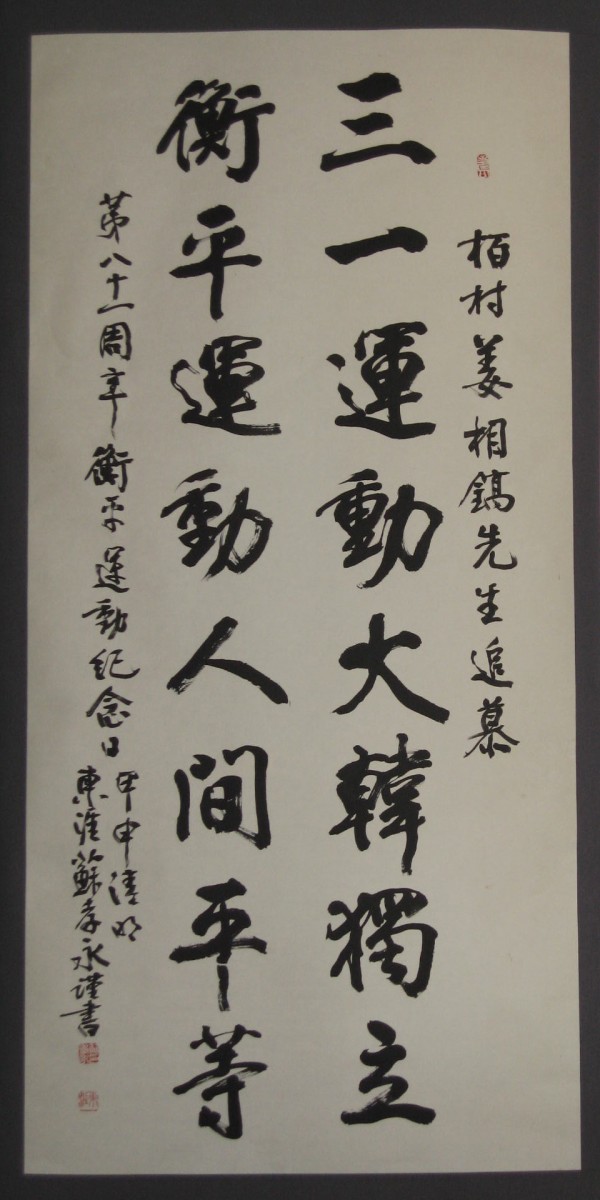 栢村姜相鎬先生追慕
三一運動大韓獨立
衡平運動人間平等
第八十一周年衡平運動紀念日
甲申淸明
東淮蘇孝永謹書